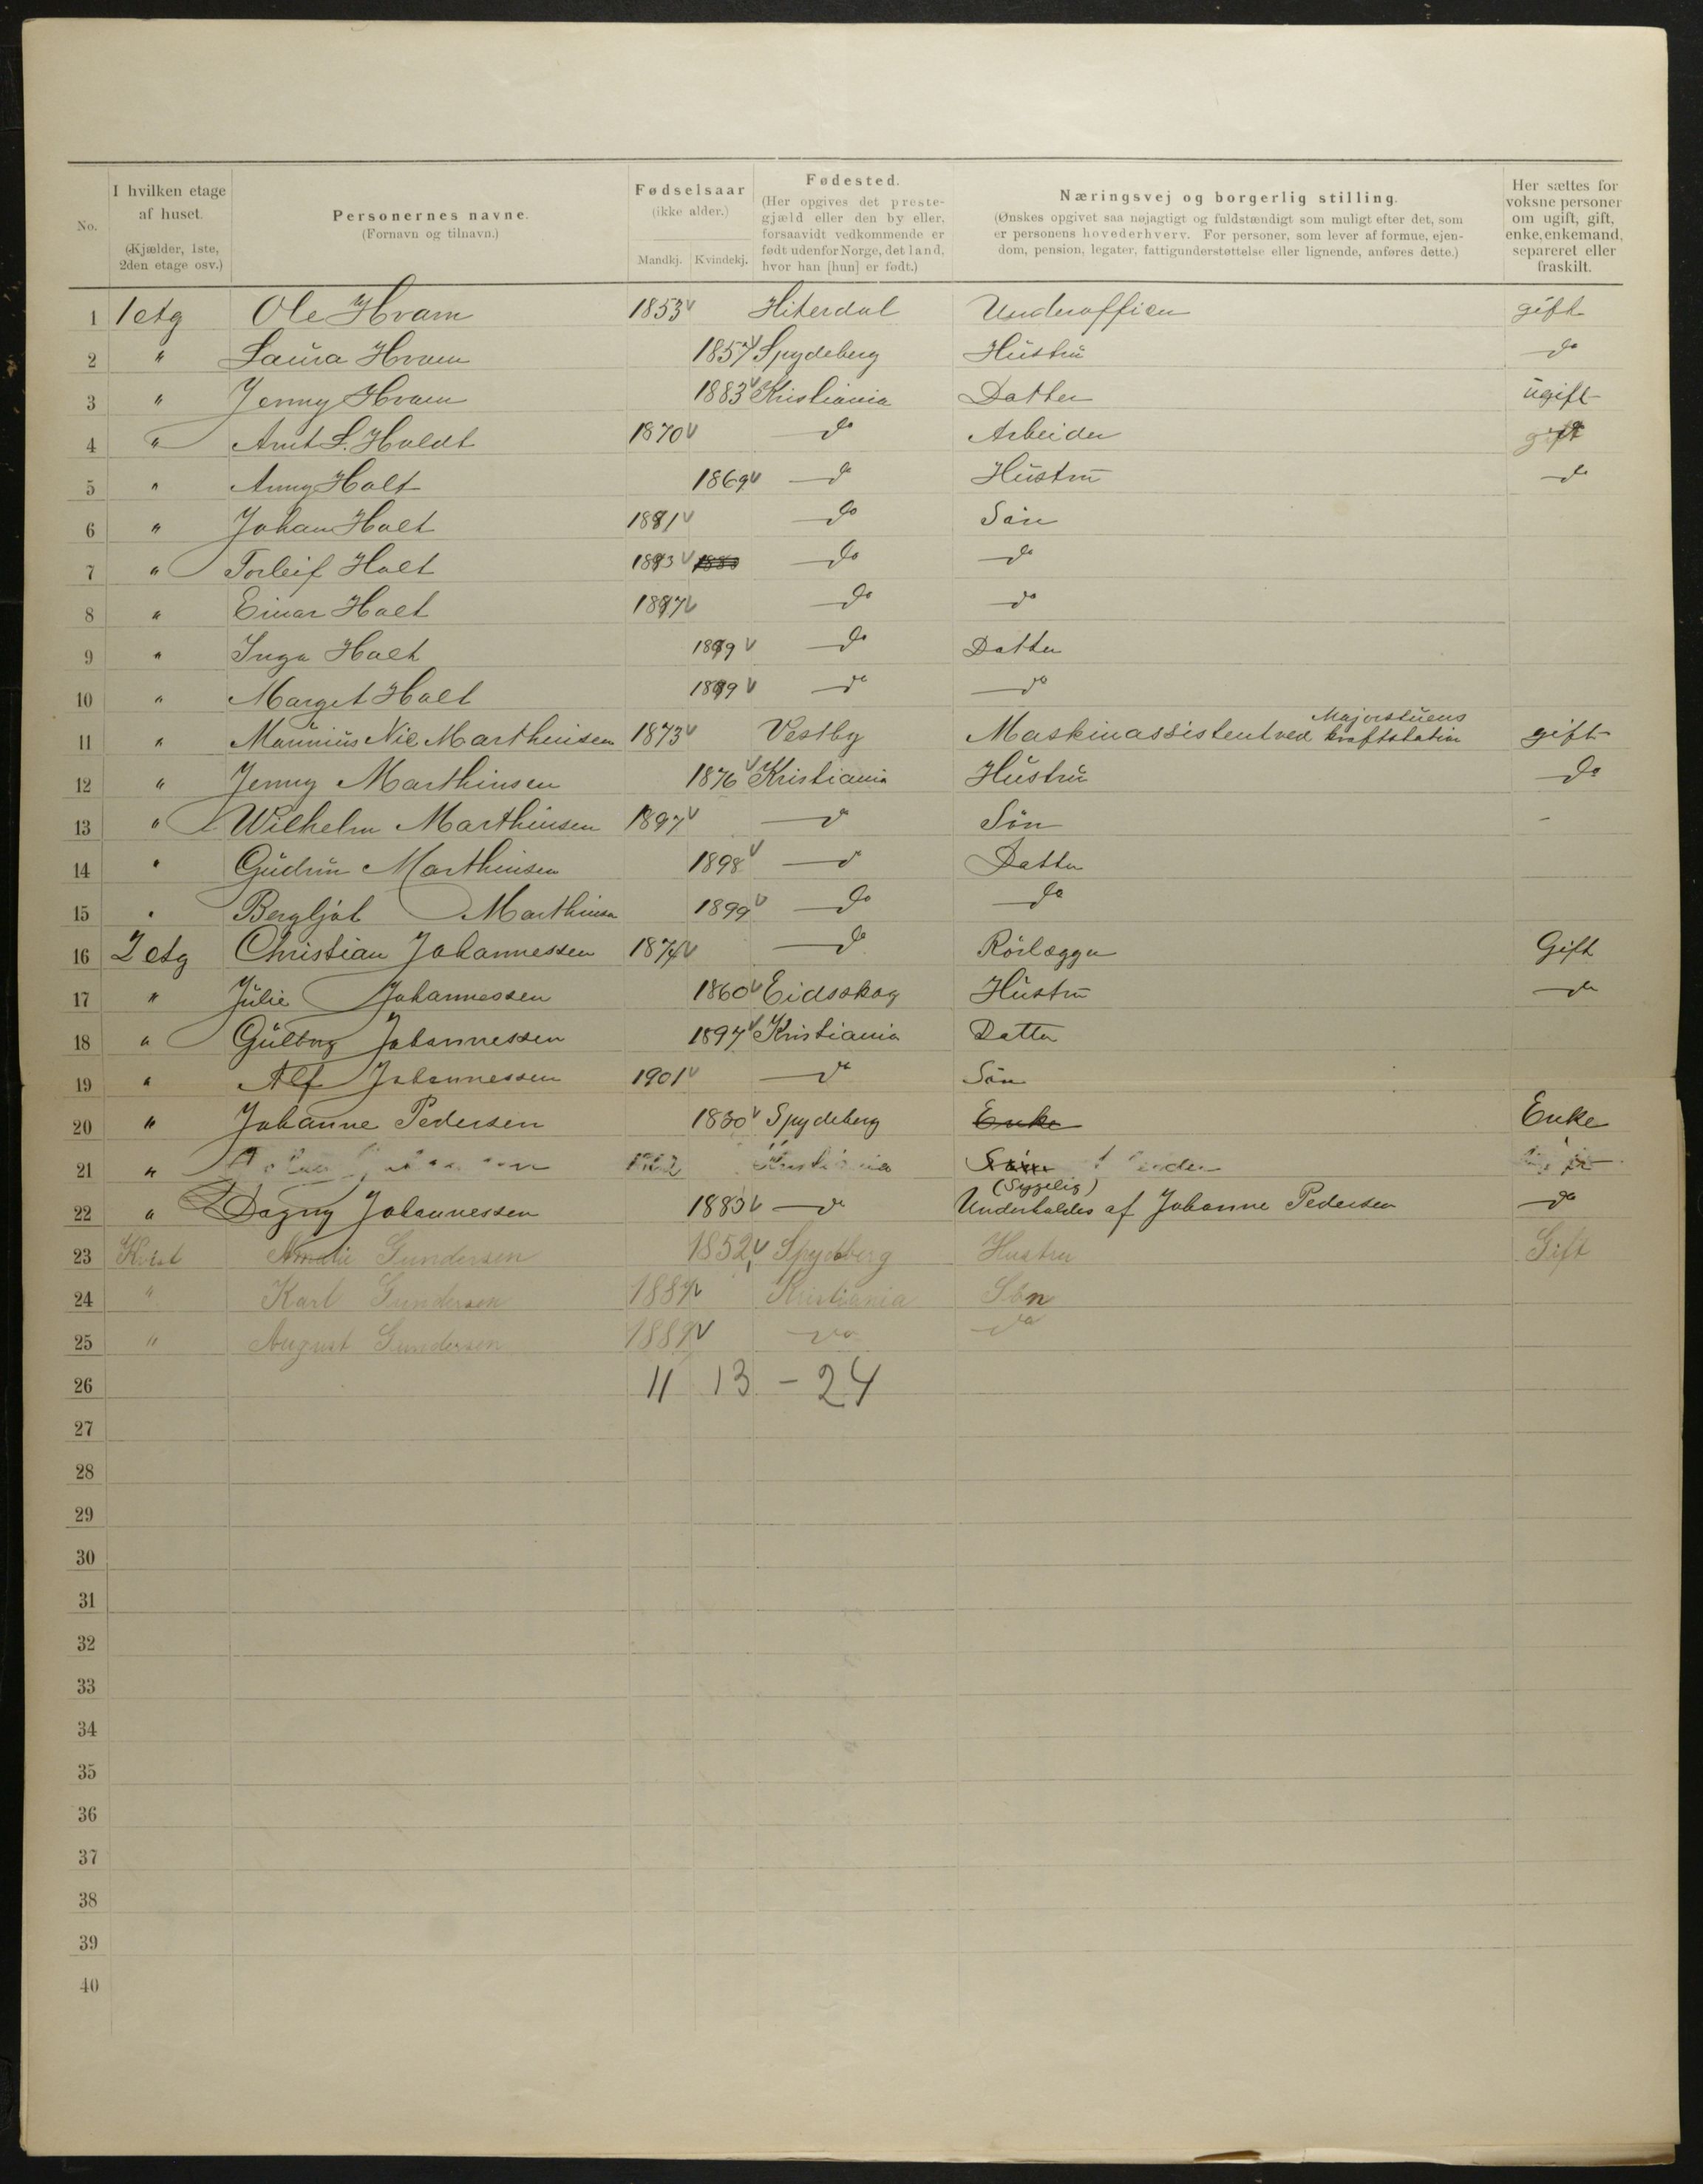 No. I hvilken etage af huset. (Kjælder, 1ste, 2den etage osv.) Personernes navne. (Fornavn og tilnavn.) Fødselsaar (ikke alder.) Mandkj. Kvindekj. Fødested. (Her opgives det prestegjæld eller den by eller, forsaavidt vedkommende er født udenfor Norge, det land, hvor han [hun] er født.) Næringsvej og borgerlig stilling. (Ønskes opgivet saa nøjagtigt og fuldstændigt som muligt efter det, som er personens hovederhverv. For personer, som lever af formue, ejendom, pension, legater, fattigunderstøttelse eller lignende, anføres dette.) Her sættes for voksne personer om ugift, gift, enke, enkemand, separeret eller fraskilt.
1 1 etg Ole Hvam 1853 Hiterdal Underofficer gift
2 " Laura Hvam 1857 Spydeberg Hustru do
3 " Jenny Hvam 1883 Kristiania Datter ugift
4 " Arnt L. Holdt 1870 do Arbeider gift
5 " Anny Holt 1869 do Hustru do
6 " Johan Holt 1891 do Søn
7 " Torleif Holt 1893 do do
8 " Einar Holt 1897 do do
9 " Inga Holt 1899 do Datter
10 " Marget Holt 1899 do do
11 " Maunius Nic Marthinsen 1873 Vestby Maskinassistent ved Majorstuens kraftstation gift
12 " Jenny Marthinsen 1876 Kristiania Hustru do
13 " Wilhelm Marthinsen 1897 do Søn -
14 " Gudrun Marthinsen 1898 do Datter
15 " Bergljot Marthinsen 1899 do do
16 2 etg Christian Johannessen 1874 do Rørlægger Gift
17 " Julie Johannessen 1860 Eidsskog Hustru do
18 " Gulborg Johannessen 1897 Kristiania Datter
19 " Alf Johannessen 1901 do Søn
20 " Johanne Pedersen 1830 Spydeberg Enke Enke
21 " Kristiania Søn
22 " Dagny Johannessen 1883 do (Sygelig) Underholdes af Johanne Pedersen do
23 Kvist Amalie Gundersen 1852 Spydeberg Hustru Gift
24 " Karl Gundersen 1887 Kristiania Søn
25 " August Gundersen 1889 do do
26 11 13 - 24
27
28
29
30
31
32
33
34
35
36
37
38
39
40